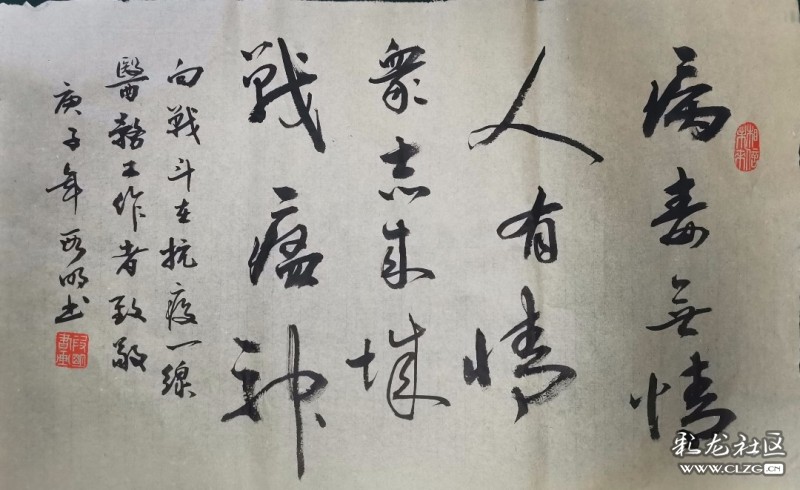 病毒無情
人有情
衆志成城
戰瘟神
向戰斗在抗疫一線
醫務工作者致敬
庚子年 段明书
彩龙社区
WWW.CLZG.CN